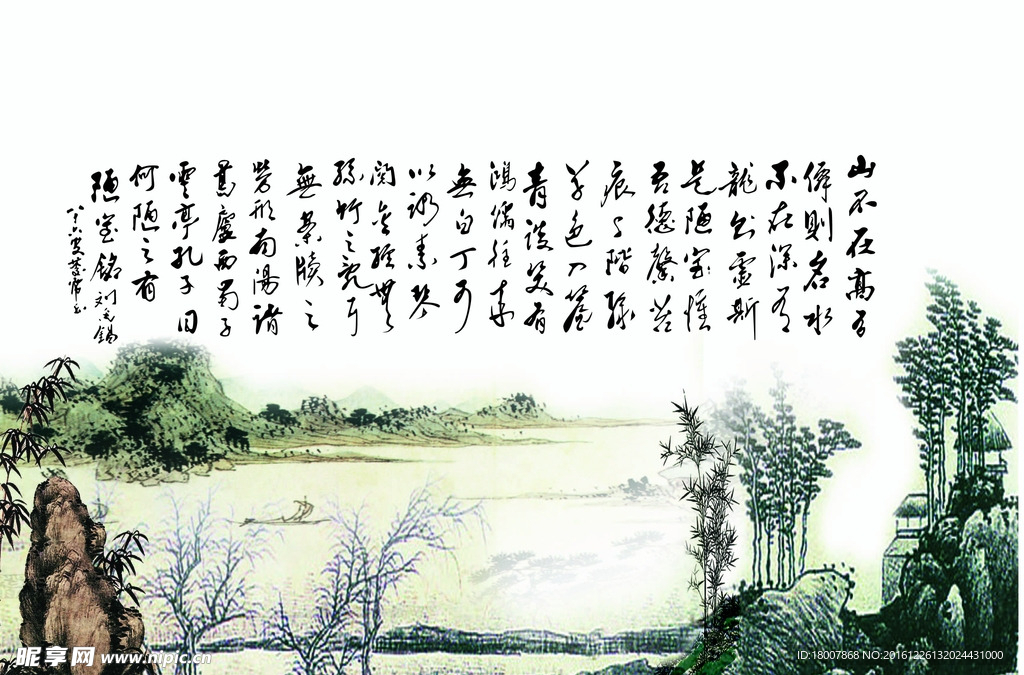 山不在高有
僊則名水
不在深有
龍則靈斯
是陋室惟
吾德馨苔
痕上階綠
草色入簾
青談笑有
鴻儒往來
無白丁可
以調素琴
閱金經無
絲竹之亂耳
無案牘之
勞形南陽諸
葛廬西蜀子
雲亭孔子曰
何陋之有
陋室銘刘禹锡
昵享网 www.nipic.cn
ID:18007868 NO:20161226132024431000